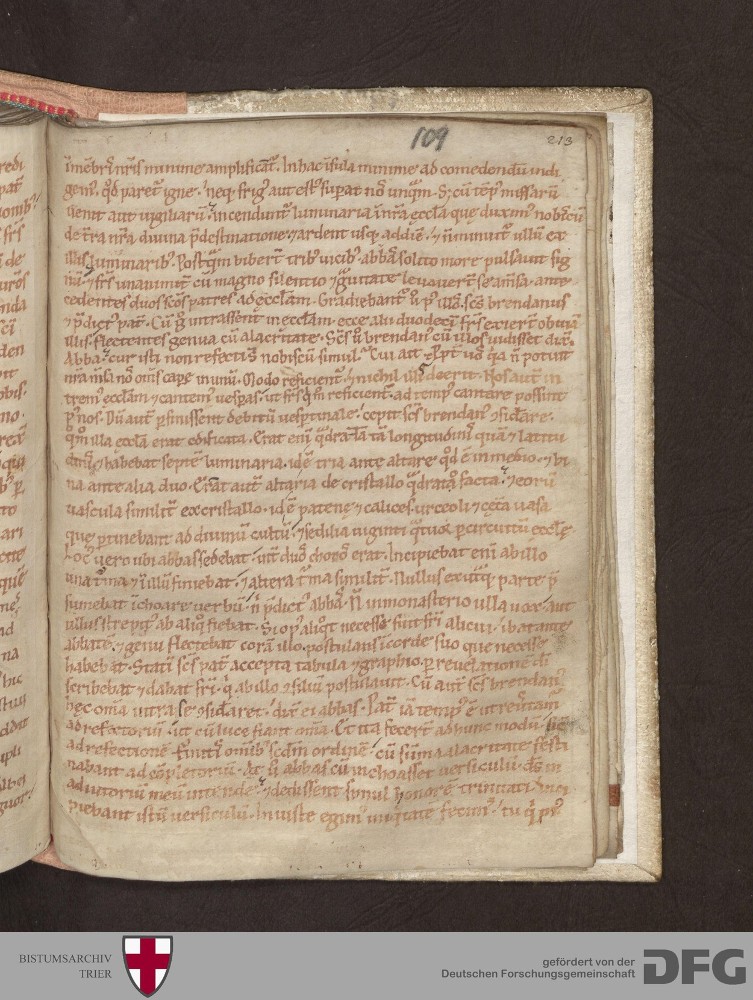 109
213
redi
im̅e̅bris nr̅is minime amplificat̅. In hac insula minime ad comedendu̅ indi
gem' q̅d paret̅ igne. neq; frig' aut est' sup̅at nos unqua̅. S; cu̅ te̅p' missaru̅
uenit aut uigiliaru̅. incendunt' luminaria in nr̅a eccl̅a que duxim' nobiscu̅
de t̅ra nr̅a diuina p̅destinatione & ardent usq; ad die̅. & n̅ minuit' ullu̅ ex
illis luminarib'. Postqua̅ biber̅t trib' uicib' abba̅ solito more pulsauit sig
nu̅. & fr̅s unanimit̅ cu̅ magno silentio & g̅uitate leuauer̅t se a m̅sa. ante
cedentes duos sc̅os patres ad eccl̅am. Gradiebant' u̅ p' illos sc̅s brendanus
& p̅dict' pat̅. Cu̅ g̅ intrassent in eccl̅am. ecce alii duodeci̅ fr̅s exier̅t obuia̅
illis flectentes genua cu̅ alacritate. Sc̅s u̅ brendan' cu̅ illos uidisset dix̅.
Abba. cur isti non refecer̅t nobiscu̅ simul. Cui ait. p̅pt̅ uos q̅a n̅ potuit
nr̅a m̅sa nos om̅s cape̅ in unu̅. Modo reficient' & nichil illis deerit. Nos aut̅ in
trem' eccl̅am & cantem' uesp̅as. ut fr̅s q̅ m̅ reficient' ad te̅p' cantare possint
p' nos. Du̅ aut̅ p̅finissent debitu̅ uesp̅tinale. cepit sc̅s brendan' ꝯsid̅are.
q̅m illa eccl̅a erat edificata. Erat eni̅ q̅drata ta̅ longitudinis qua̅ & latitu
dinis & habebat septe̅ luminaria. id e̅ tria ante altare q̅d e̅ in medio. & bi
na ante alia duo. Erant aut̅ altaria de cristallo q̅drato facta. & eoru̅
uascula similit̅ ex cristallo. id e̅ patene & calices. urceoli & cet̅a uasa
que p̅tinebant ad diuinu̅ cultu̅. & sedilia uiginti q̅tuor p̅ circuitu̅ eccl̅ę
Loc' uero ubi abbas sedebat. int̅ duos choros erat. Incipiebat eni̅ ab illo
una t̅ma & in illu̅ finiebat. & altera t̅ma similit̅. Nullus ex utq; parte p̅
sumebat i̅choare uerbu̅. n̅ p̅dict' abba̅. N̅ in monasterio ulla uox. aut
ullus strepit' ab aliq̅ fiebat. Si op' aliq̅t necesse fuit fr̅i alicui. ibat ante
abbate̅. & genu flectebat cora̅ illo. postulans i̅ corde suo que necesse
habebat. Stati̅ sc̅s pat̅ accepta tabula & graphio. p̅ reuelatione̅ di̅
scribebat & dabat fr̅i. q̅ ab illo ꝯsiliu̅ postulauit. Cu̅ aut̅ sc̅s brendan'
hęc om̅ia intra se ꝯsid̅aret. dix̅t ei abbas. Pat̅ ia̅ temp' e̅ ut reu̅tam̅
ad refectoriu̅. ut cu̅ luce fiant om̅ia. Et ita fecer̅t ad hunc modu̅. sic̅
ad refectione̅. Finitis om̅ib' sc̅dm ordine̅. cu̅ su̅ma alacritate festi
nabant ad co̅pletoriu̅. At u̅ abbas cu̅ inchoasset uersiculu̅. d̅s in
adiutoriu̅ meu̅ intende. & dedissent simul honore̅ trinitati. inci
piebant istu̅ uersiculu̅. Iniuste egim' iniq̅tate̅ fecim'. tu q̅ pi'
BISTUMSARCHIV
TRIER
gefördert von der
Deutschen Forschungsgemeinschaft
DFG